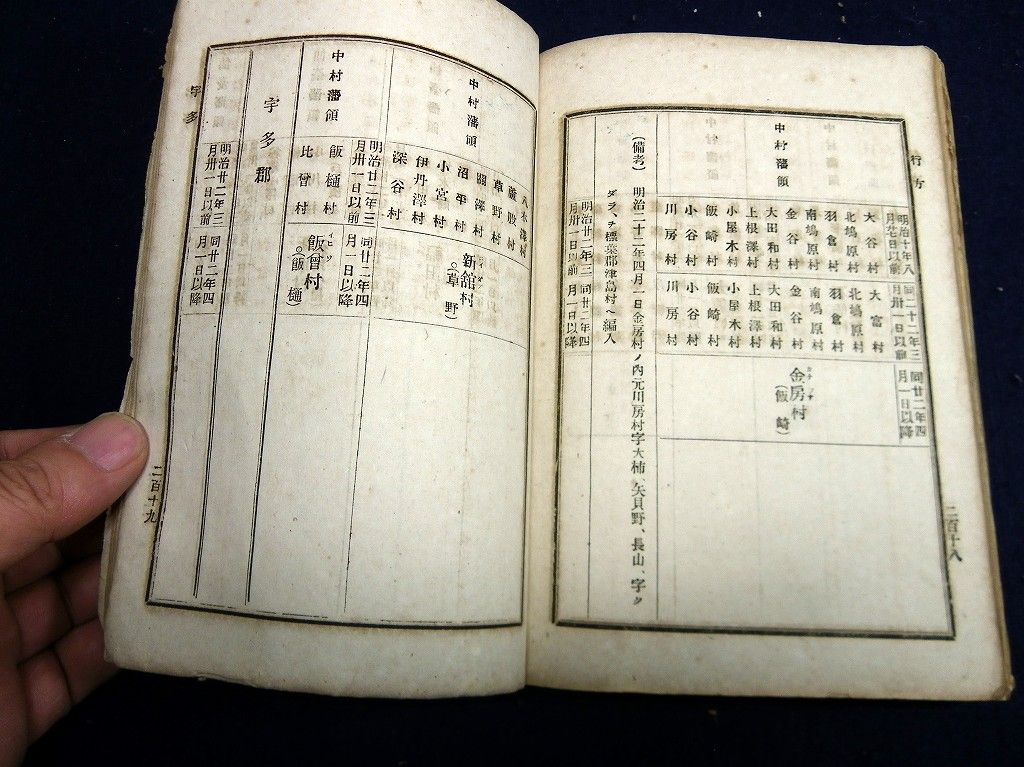 行方
明治十年八月廿日以前
同二十二年三月卅一日以前
同廿二年四月一日以降
中村藩領
大谷村
大富村
北鳩原村
北鳩原村
羽倉村
羽倉村
南鳩原村
南鳩原村
金谷村
金谷村
大田和村
大田和村
上根澤村
上根澤村
小屋木村
小屋木村
飯崎村
飯崎村
小谷村
小谷村
川房村
川房村
金房村
(飯崎)
(備考) 明治二十二年四月一日金房村ノ内元川房村字大柿、矢貝野、長山、字ク
ダラ、ヲ標葉郡津島村ヘ編入
明治廿二年三月卅一日以前
同廿二年四月一日以降
二百十八
中村藩領
八木澤村
蕨股村
草野村
關澤村
沼平村
小宮村
伊丹澤村
深谷村
新舘村
(草野)
明治廿二年三月卅一日以前
同廿二年四月一日以降
中村藩領
飯樋村
比曾村
飯曾村
イヒソ
(飯樋)
宇多郡
明治廿二年三月卅一日以前
同廿二年四月一日以降
宇多
二百十九